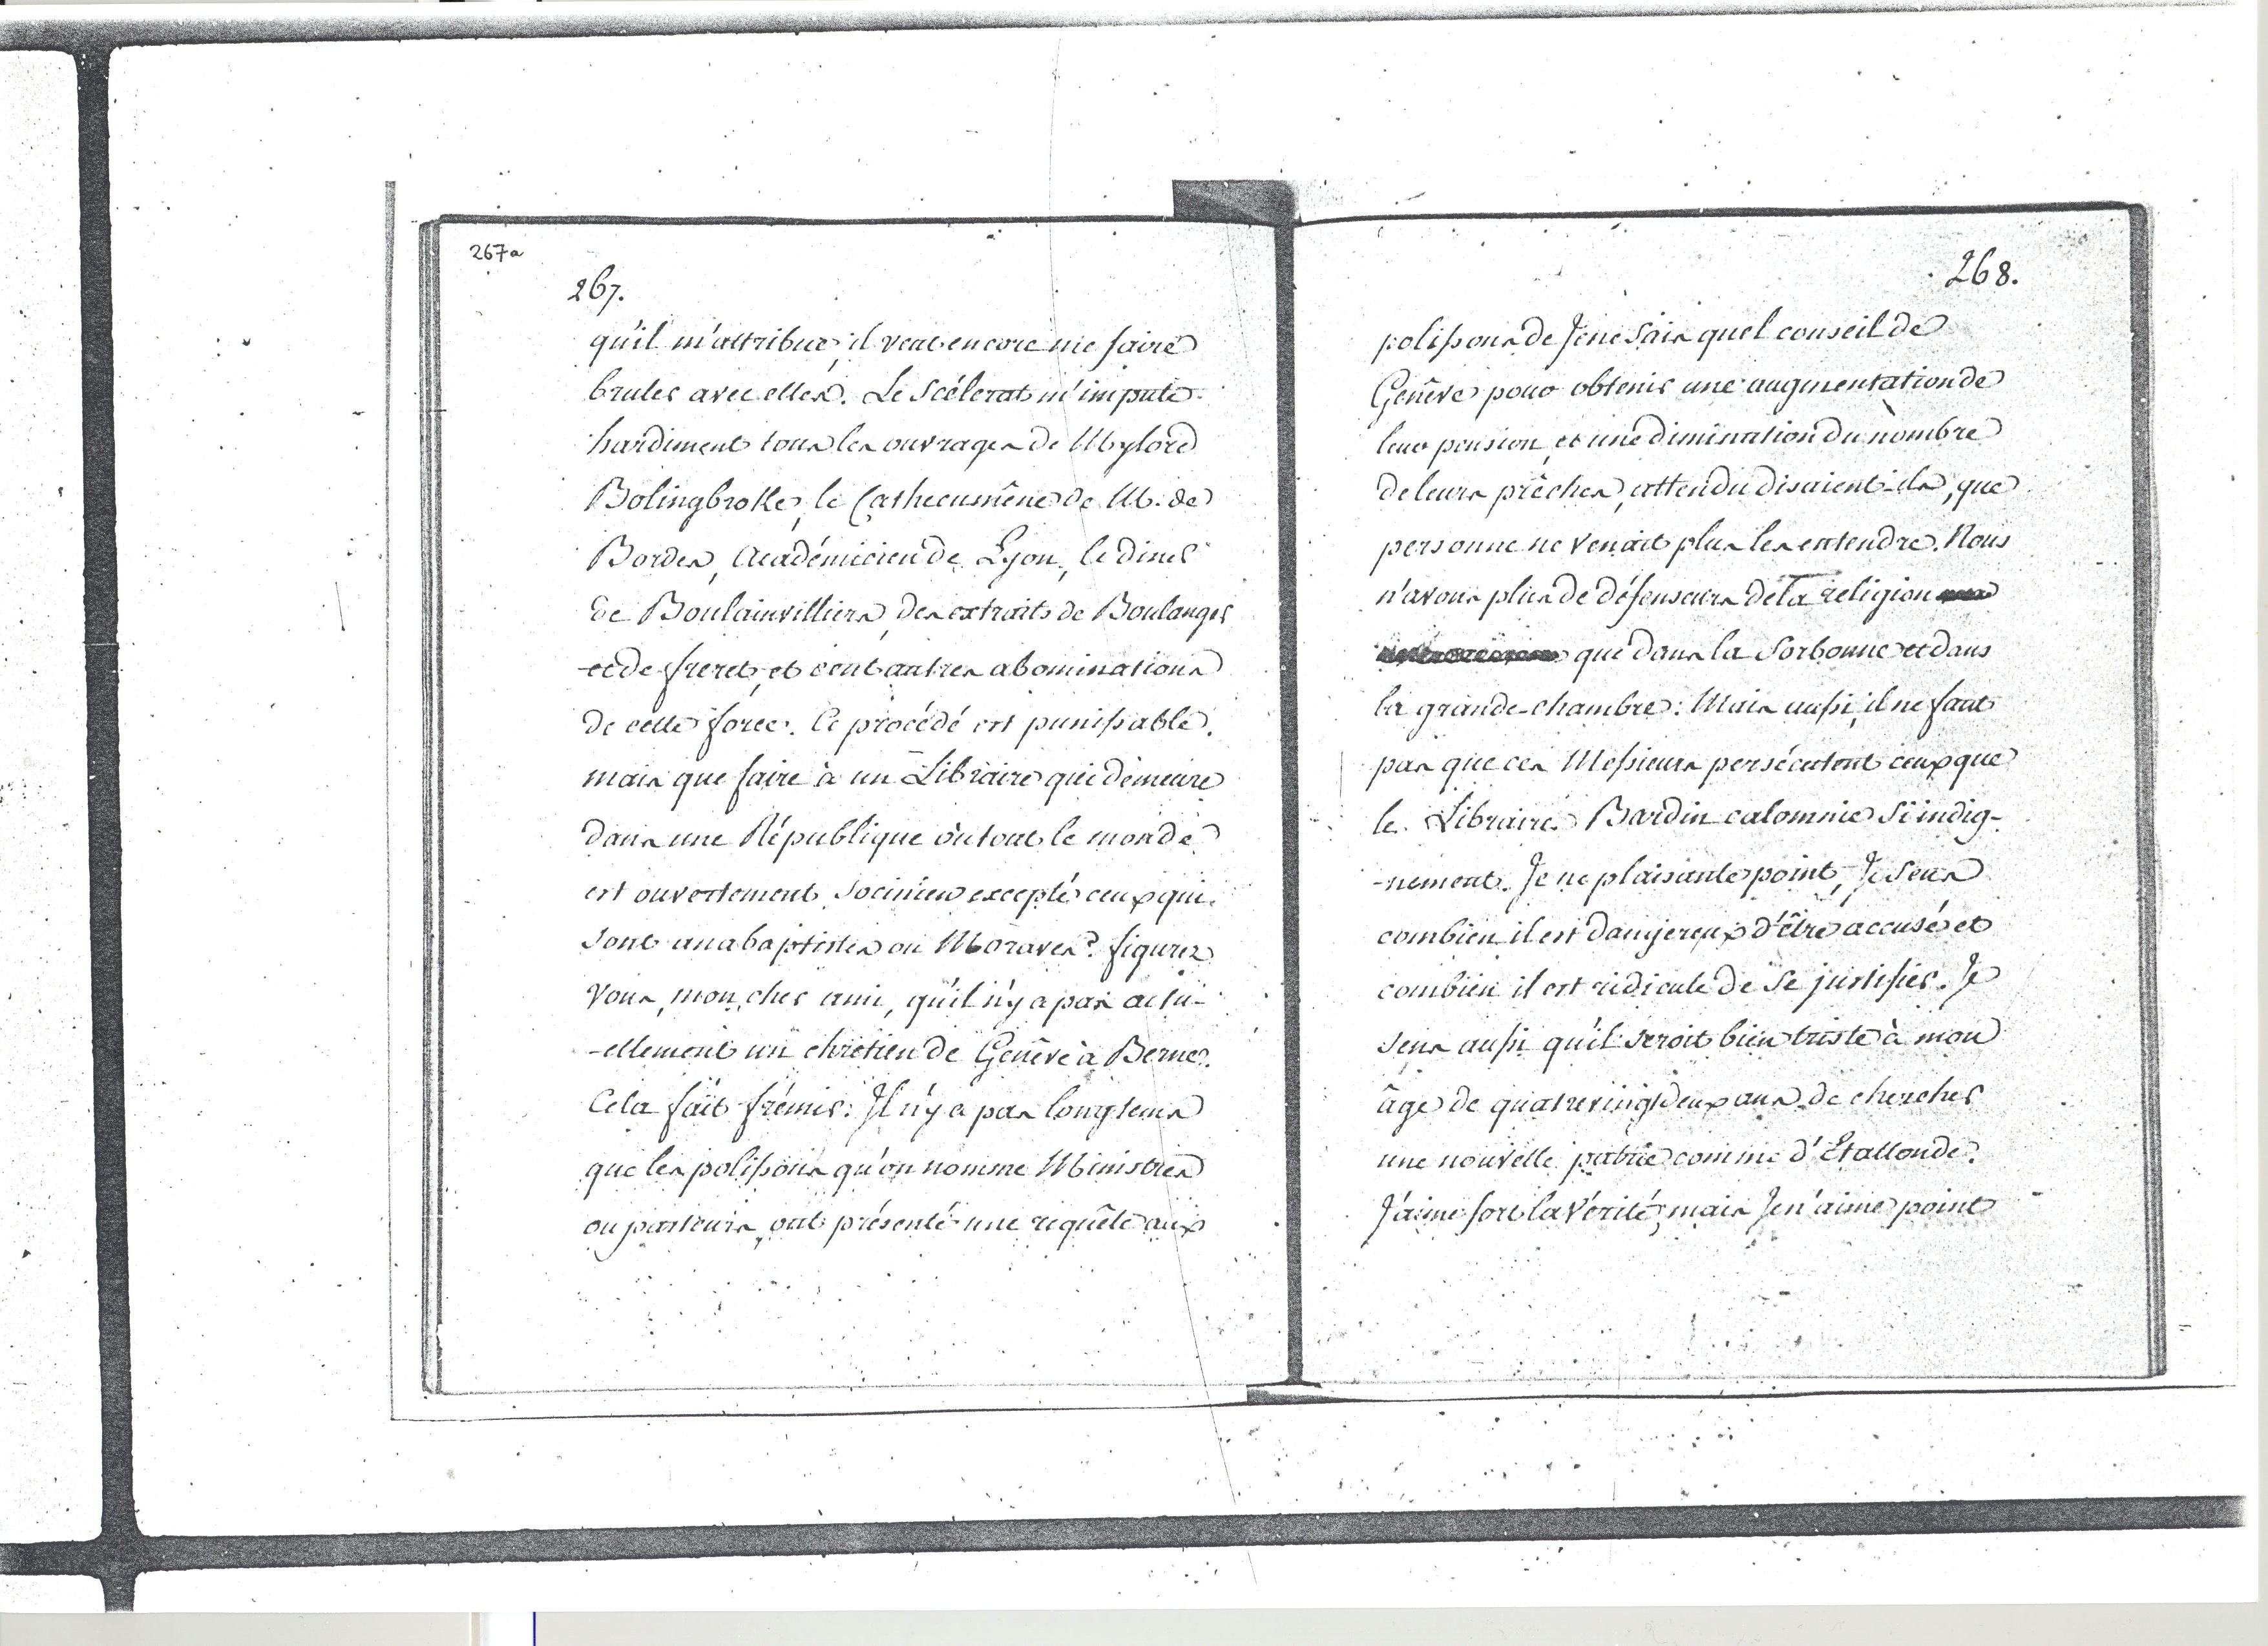 267a
267.
qu'il m'attribue, il veut encore me faire
bruler avec elles. Le Scélerat m'impute
hardiment tous les ouvrages de Mylord
Bolingbroke, le Cathecumêne de M. de
Bordes, Académicien de Lyon, le diner
de Boulainvilliers, des extraits de Boulanger
et de freret, et cent autres abominations
de cette force. Ce procédé est punissable.
mais que faire à un Libraire qui demeure
dans une République où tout le monde
est ouvertement Socinien excepté ceux qui
sont anabaptistes ou Moraves? figurez
vous, mon cher ami, qu'il n'y a pas actu-
-ellement un chrétien de Genêve à Berne.
Cela fait frémir. Il n'y a pas longtems
que les polissons qu'on nomme Ministres
ou pasteurs, ont présenté une requête aux
268.
polissons de Je ne sais quel conseil de
Genêve pour obtenir une augmentation de
leur pension, et une diminution du nombre
de leurs prêches, attendu disaient-ils, que
personne ne venait plus les entendre. Nous
n'avons plus de défenseurs de la religion
que dans la Sorbonne et dans
la grande-chambre: Mais aussi, il ne faut
pas que ces Messieurs persécutent ceux que
le Libraire Bardin calomnie si indig-
-nement. Je ne plaisante point, Je sens
combien il est dangereux d'être accusé et
combien il est ridicule de se justifier. Je
sens aussi qu'il seroit bien triste à mon
âge de quatrevingt deux ans de chercher
une nouvelle patrie comme d'Etallonde.
J'aime fort la vérité, mais Je n'aime point